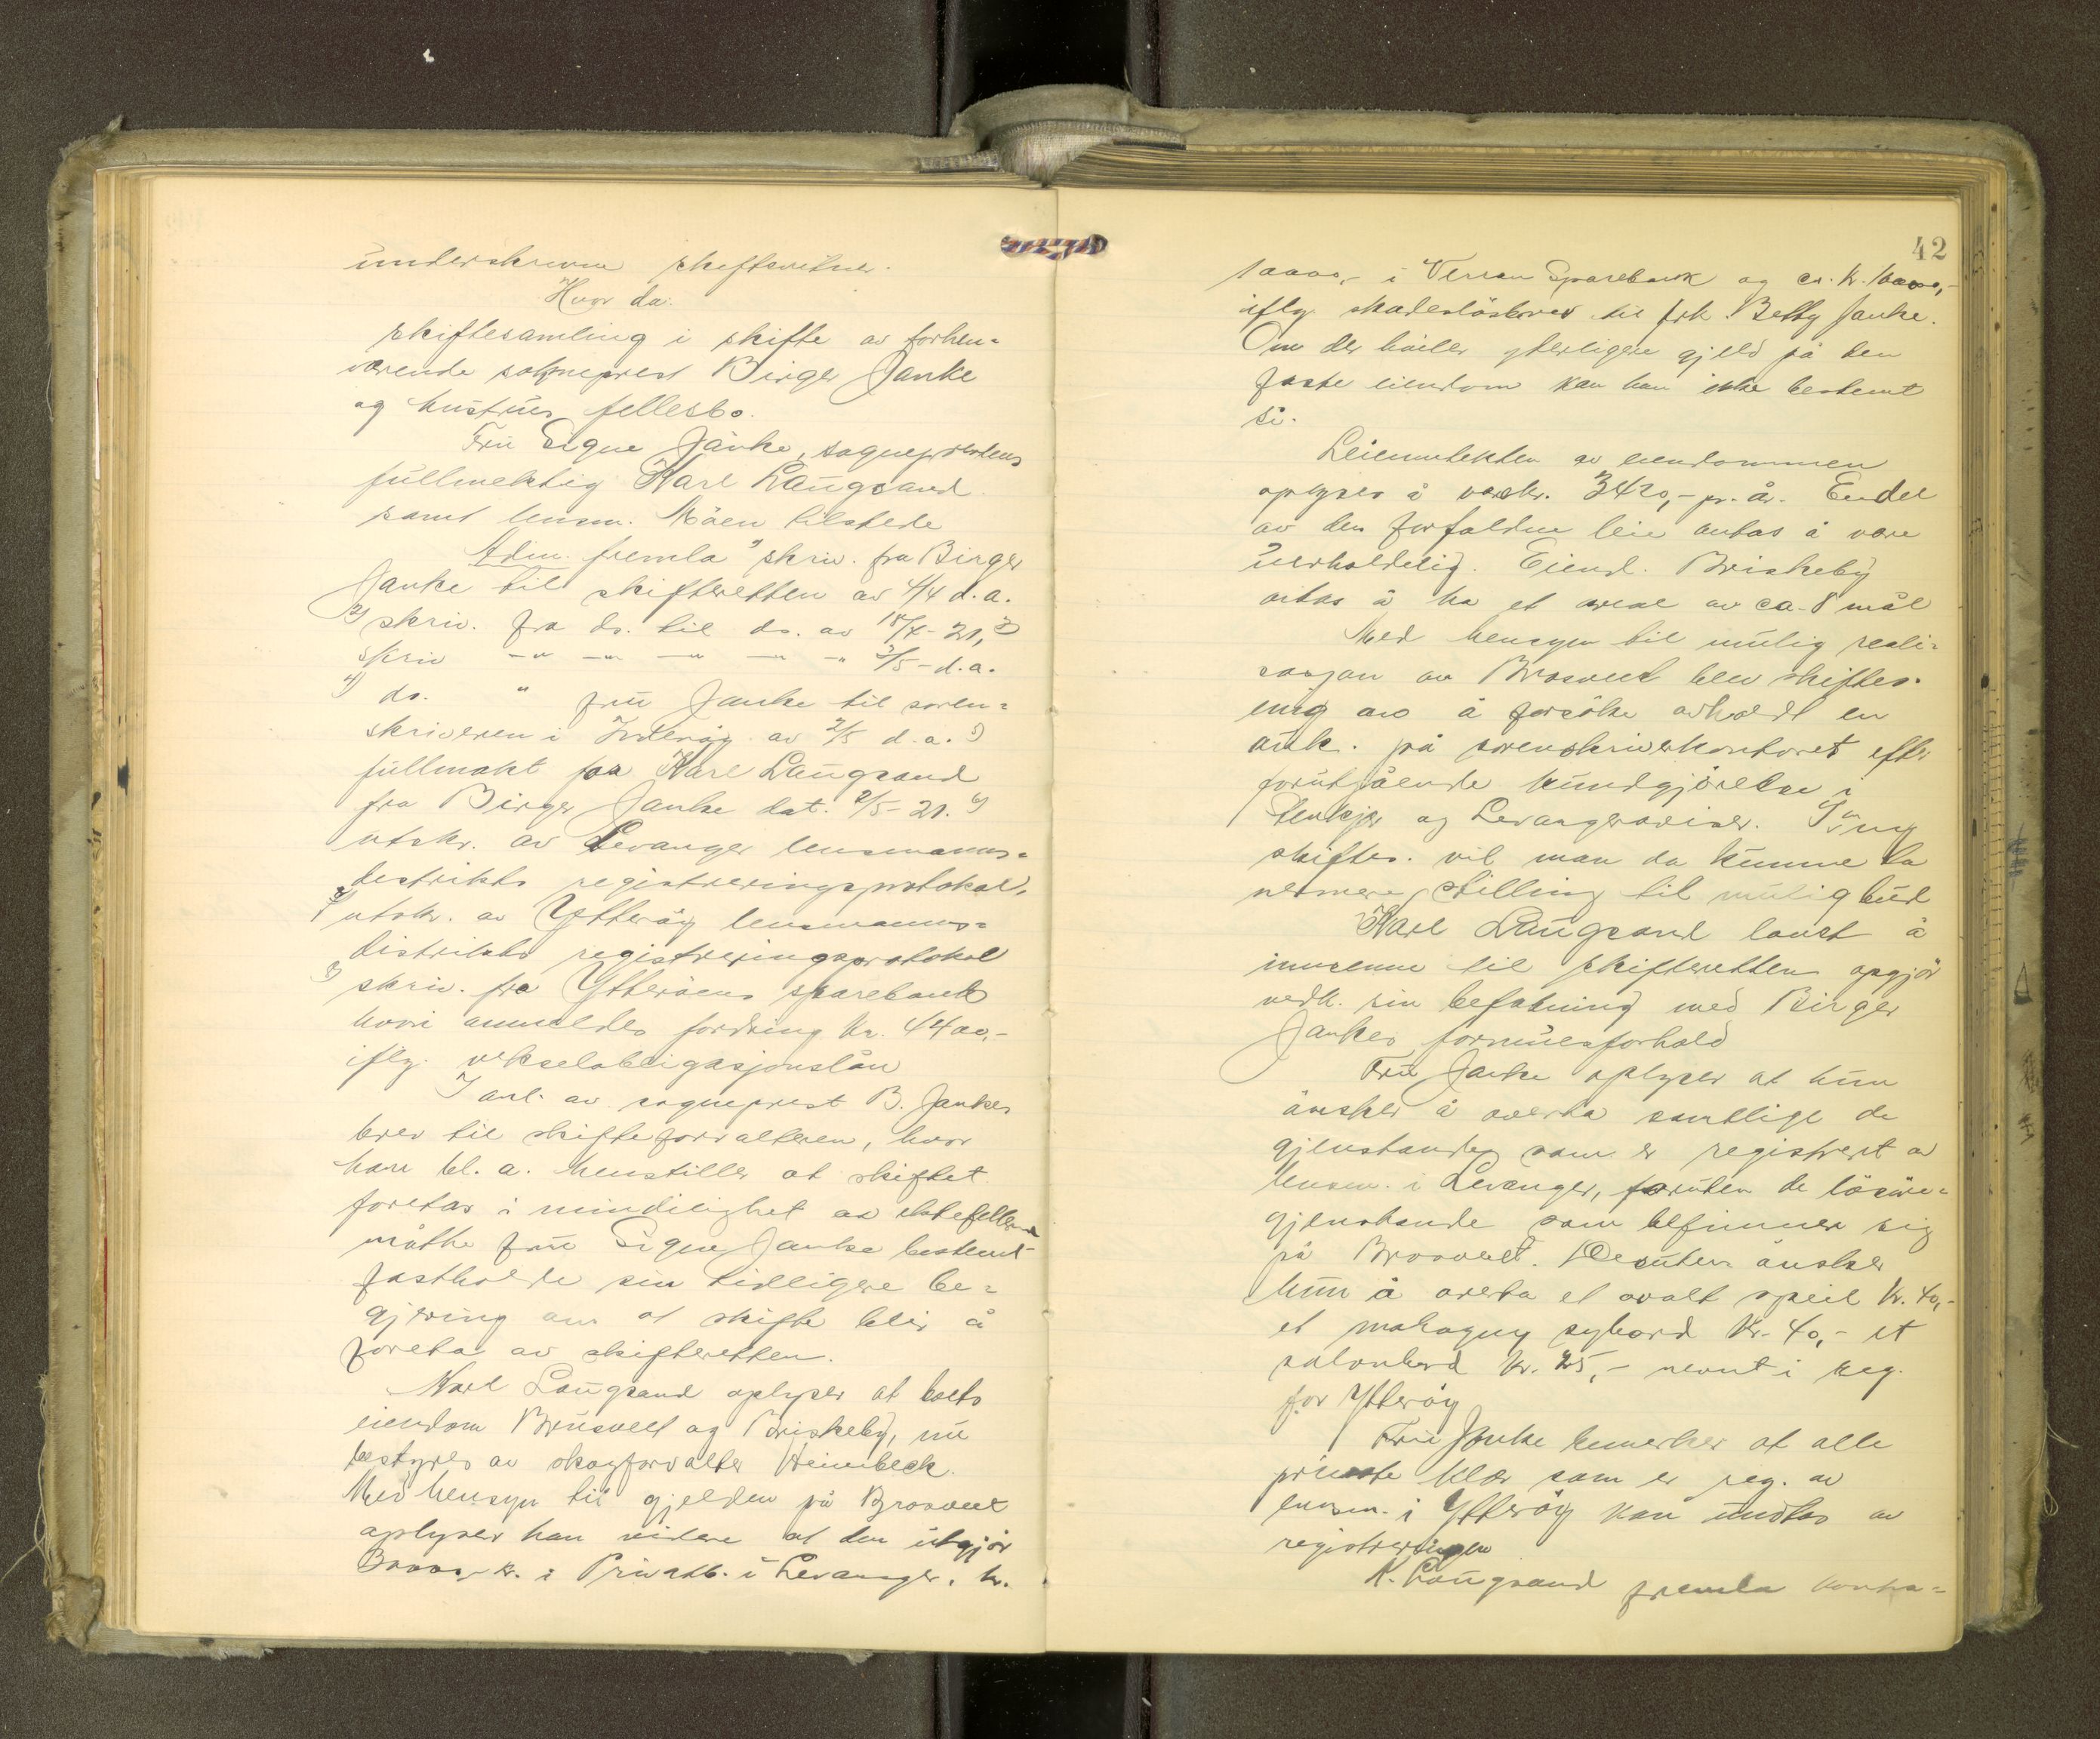 underskrevne skiftevitner.
Hvor da:
skiftesamling i skifte av forhen-
værende sokneprest Birger Janke
og hustrus fellesbo.
Fru Signe Janke, sogneprestens
fullmektig Karl Langsand
samt lensm. Måen tilstede
Adm. fremla 1) skriv. fra Birger
Janke til skifteretten av 4/4 d.a.
2) skriv. fra ds. til ds. av 18/4-21, 3)
skriv -"- -"- -"- -"- -"- 3/5-d.a.
4) ds. " fru Janke til soren-
skriveren i Inderøy av 2/5 d.a. 5)
fullmakt for Karl Langsand
fra Birger Janke dat. 2/5-21. 6)
utskr. av Levanger lensmanns-
destrikts registreringsprotokol,
7) utskr. av Ytterøy lensmanns-
distrikts registreringsprotokol
8) skriv. fra Ytterøens sparebank
hvori anmeldes fordring kr. 4400,-
iflg. vekselobligasjonslån
I anl. av sogneprest B. Jankes
brev til skifteforvalteren, hvor
han bl. a. henstiller at skiftet
foretas i mindelighet av ektefellerne
måtte fru Signe Janke bestemt
fastholde sin tidligere be-
gjering om at skifte blir å
foreta av skifteretten.
Karl Langsand oplyser at boets
eiendom Brusvett og Briskeby, nu
bestyres av skogforvalter Heimbeck.
Med hensyn til gjelden på Brosvet
oplyser han videre at den utgjør
3000,- kr. i Privatb. i Levanger, kr.
42
10000,- i Verran Sparebank og ca. kr. 10000,-
iflg. skadesløsbrev til frk. Betty Janke.
Om der hviler yterligere gjeld på den
faste eiendom kan han ikke bestemt
si.
Leieinntekten av eiendommen
oplyses å være kr. 3420,- pr. år. Endel
av den forfaldne leie antas å være
uerholdelig. Eiend. Briskeby
antas å ha et areal av ca. 8 mål
Med hensyn til mulig reali-
sasjon av Brosvet blev skiftes.
enig om å forsøke avholdt en
auk. på sorenskriverkontoret efter
forutgående kundgjørelse i
Stenkjer og Levangeraviser. I ny
skiftes. vil man da kunne ta
nermere stilling til mulig bud
Karl Langsand lovet å
innsenne til skifteretten opgjør
vedk. sin befatning med Birger
Jankes formuesforhold
Fru Janke oplyser at hun
ønsker å overta samtlige de
gjenstander som er registrert av
lensm. i Levanger, foruten de løsøre-
gjenstande som befinner sig
på Brosvet. Desuten ønsker
hun å overta et ovalt speil kr. 40,-
et mahogny sybord kr. 40,- et
salonbord kr. 25,- nevnt i reg.
for Ytterøy
Fru Janke bemerker at alle
private klær som er reg. av
lensm. i Ytterøy kan undtas av
registreringen
K. Langsand fremla konta-